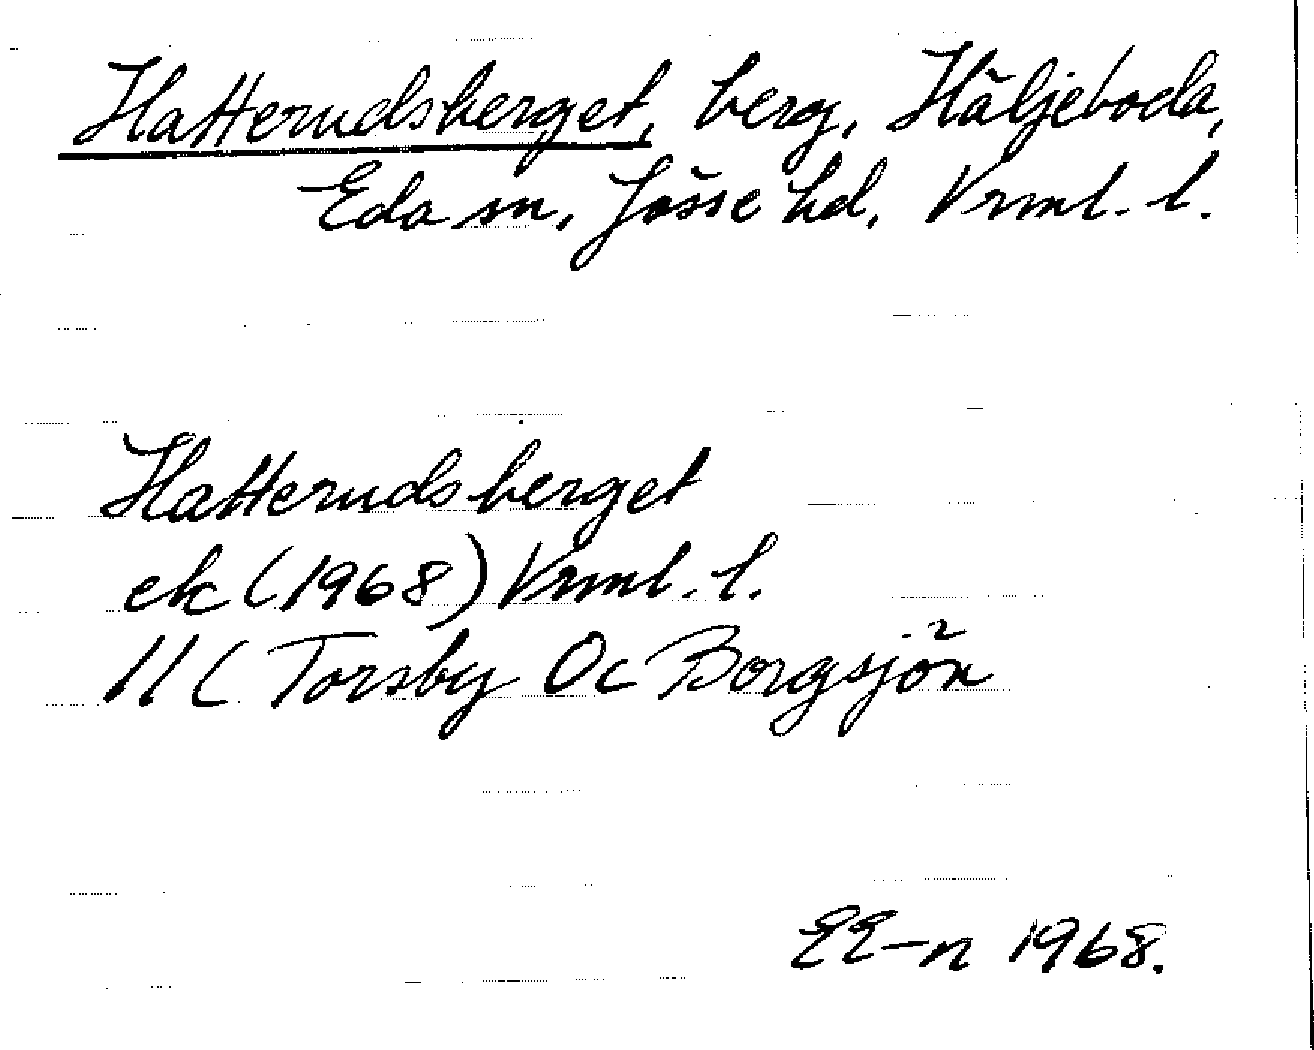 Hatterudsberget, berg, Häljeboda,
Eda sn, Jösse hd, Vrml. l.
Hatterudsberget
ek (1968) Vrml. l.
11C Torsby Oc Borgsjön
EE-n 1968.